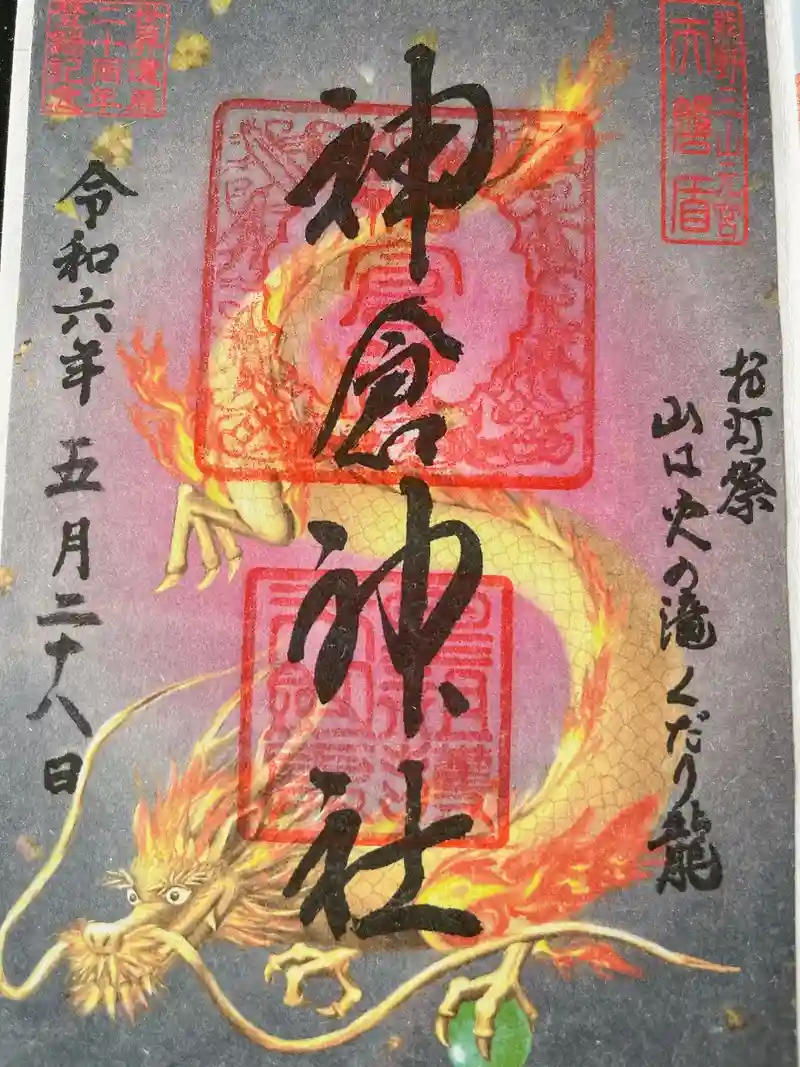 熊野三山元宮
天磐盾
お灯祭
山は火の滝くだり龍
神倉神社
令和六年 五月二十八日
世界遺産
二十周年
登録記念